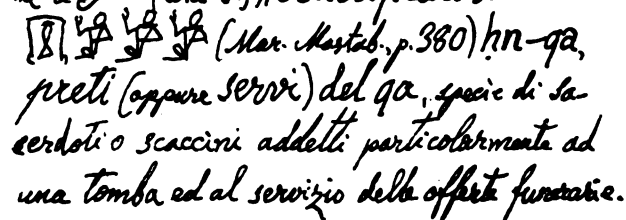 (Mar. Mastab., p. 380) ḥn-qa,
preti (oppure servi) del qa, specie di sa-
cerdoti o scaccini addetti particolarmente ad
una tomba ed al servizio delle offerte funerarie.